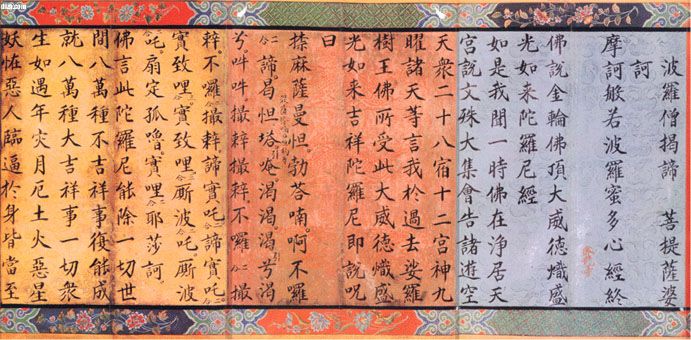 波羅僧揭諦　菩提薩婆
訶
摩訶般若波羅蜜多心經終
佛說金輪佛頂大威德熾盛
光如来陀羅尼經
如是我聞一時佛在淨居天
宮說文殊大集會告諸遊空
天衆二十八宿十二宮神九
曜諸天等言我於過去娑羅
樹王佛所受此大威德熾盛
光如来吉祥陀羅尼即說呪
曰
麻薩曼怛勃荅喃啊不羅
二合諦曷怛塔唵渴渴渴兮渴
兮吽吽撮辢辢不羅二合撮
辢不羅二合撮辢諦實吒二合諦實吒
實致哩二合實致哩二合厮波二合吒厮波
二合吒扇定孤嚕實哩二合耶莎訶
佛言此陀羅尼能除一切世
間八萬種不吉祥事復能成
就八萬種大吉祥事一切衆
生如遇年災月厄土火惡星
妖怪惡人臨逼於身皆當至